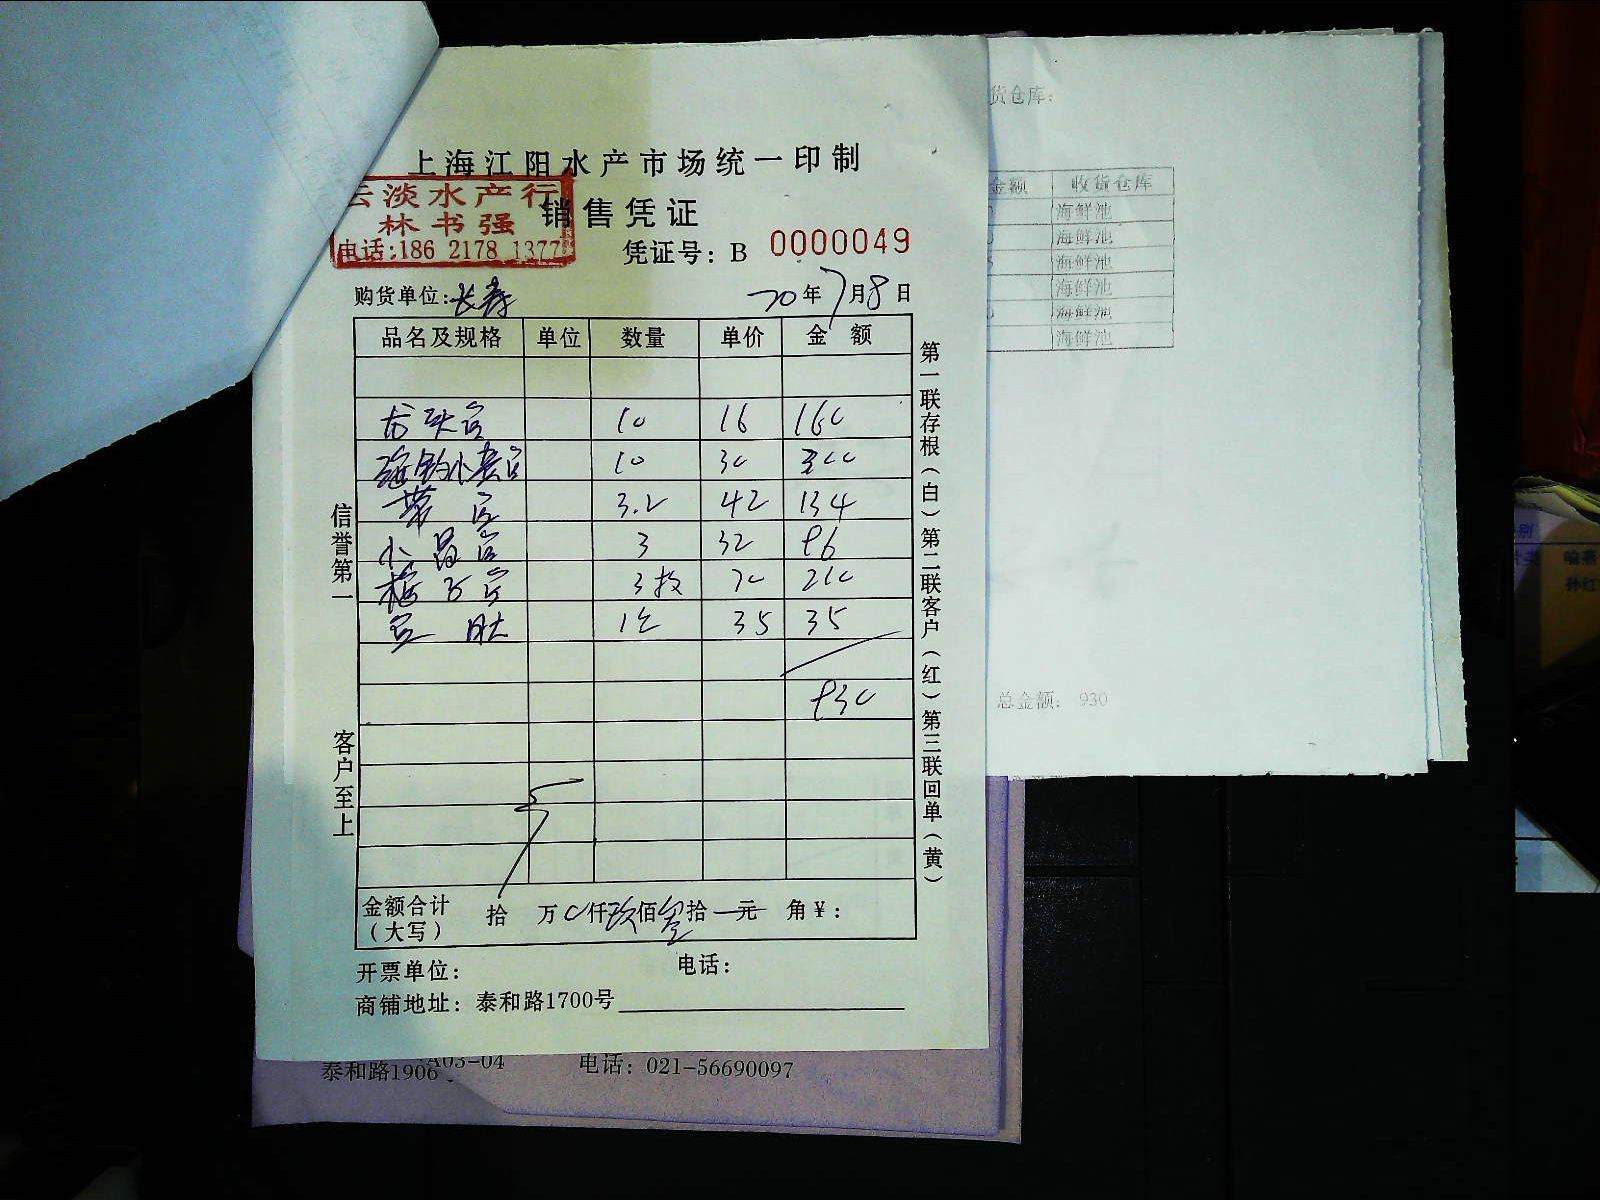 上海江阳水产市场统一印制
云淡水产行
林书强
电话:186 2178 1377
销售凭证
凭证号：B 0000049
购货单位:长寿 20年7月8日
品名及规格 单位 数量 单价 金额
龙头鱼 10 16 160
海钓小黄鱼 10 30 300
带鱼 3.2 42 134
小昌鱼 3 32 96
梅子鱼 3板 70 210
鱼肚 1包 35 35
930
金额合计（大写） 拾 万0仟玖佰叁拾 元 角￥：
开票单位：
电话：
商铺地址：泰和路1700号
信誉第一
客户至上
第一联存根（白）第二联客户（红）第三联回单（黄）
货仓库：
金额 收货仓库
海鲜池
海鲜池
海鲜池
海鲜池
海鲜池
海鲜池
总金额： 930
A03-04
泰和路1906
电话：021-56690097